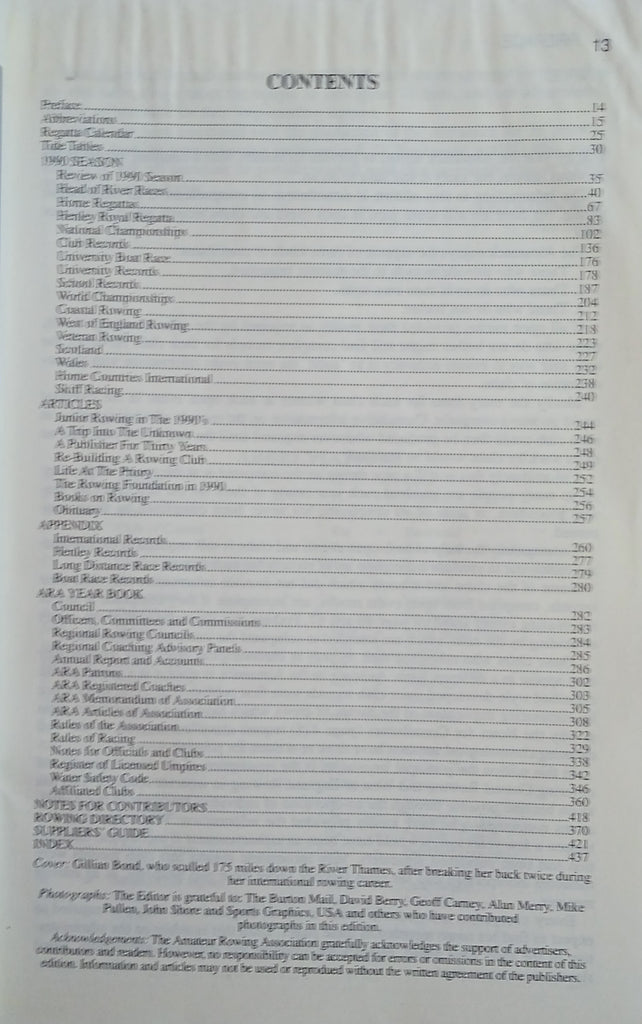 13
CONTENTS
Preface 14
Abbreviations 15
Regatta Calendar 25
Title Tables 30
1990 SEASON
Review of 1990 Season 35
Head of River Races 40
Home Regattas 67
Henley Royal Regatta 83
National Championships 102
Club Records 136
University Boat Race 176
University Records 178
School Records 187
World Championships 204
Coastal Rowing 212
West of England Rowing 218
Veteran Rowing 223
Scotland 227
Wales 232
Home Countries International 238
Skiff Racing 240
ARTICLES
Junior Rowing in The 1990's 244
A Trip Into The Unknown 246
A Publisher For Thirty Years 248
Re-Building A Rowing Club 249
Life At The Priory 252
The Rowing Foundation in 1990 254
Books on Rowing 256
Obituary 257
APPENDIX
International Records 260
Henley Records 277
Long Distance Race Records 279
Boat Race Records 280
ARA YEAR BOOK
Council 282
Officers, Committees and Commissions 283
Regional Rowing Councils 284
Regional Coaching Advisory Panels 285
Annual Report and Accounts 286
ARA Patrons 302
ARA Registered Coaches 303
ARA Memorandum of Association 305
ARA Articles of Association 308
Rules of the Association 322
Rules of Racing 329
Notes for Officials and Clubs 338
Register of Licensed Umpires 342
Water Safety Code 346
Affiliated Clubs 360
NOTES FOR CONTRIBUTORS 418
ROWING DIRECTORY 370
SUPPLIERS' GUIDE 421
INDEX 437
Cover: Gillian Bond, who sculled 175 miles down the River Thames, after breaking her back twice during
her international rowing career.
Photographs: The Editor is grateful to: The Burton Mail, David Berry, Geoff Carney, Alan Merry, Mike
Pullen, John Shore and Sports Graphics, USA and others who have contributed
photographs in this edition.
Acknowledgements: The Amateur Rowing Association gratefully acknowledges the support of advertisers,
contributors and readers. However, no responsibility can be accepted for errors or omissions in the content of this
edition. Information and articles may not be used or reproduced without the written agreement of the publishers.